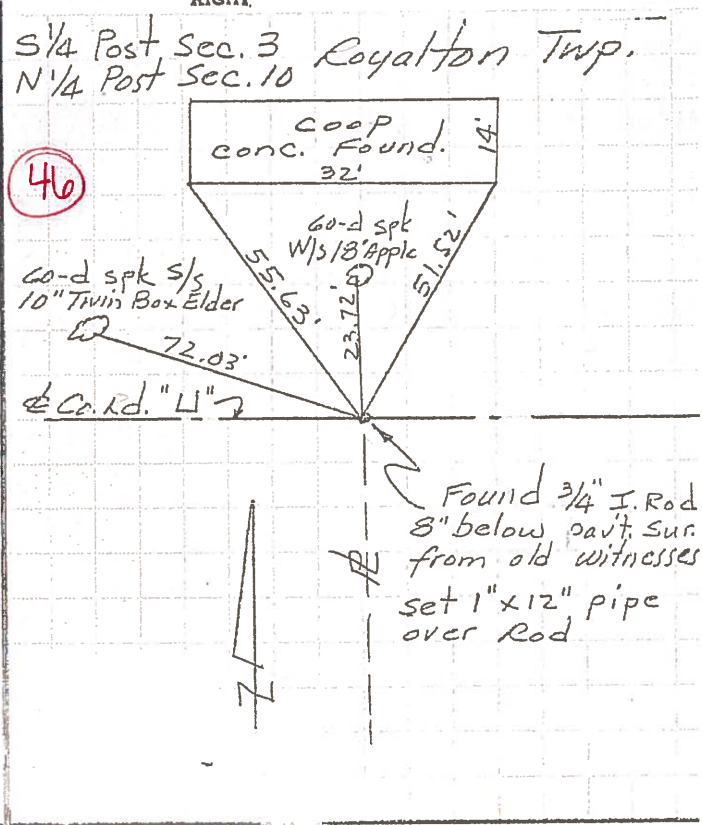 RIGHT.
S1/4 Post Sec. 3 Royalton Twp.
N1/4 Post Sec. 10
46
COOP
conc. Found.
32'
14'
60-d spk
W/s 18" Apple
55.63'
23.72'
51.52'
60-d spk S/s
10" Twin Box Elder
72.03'
℄ Co. Rd. "U"
Found 3/4" I. Rod
8" below pav't. Sur.
from old witnesses
set 1" x 12" pipe
over Rod
℄
N